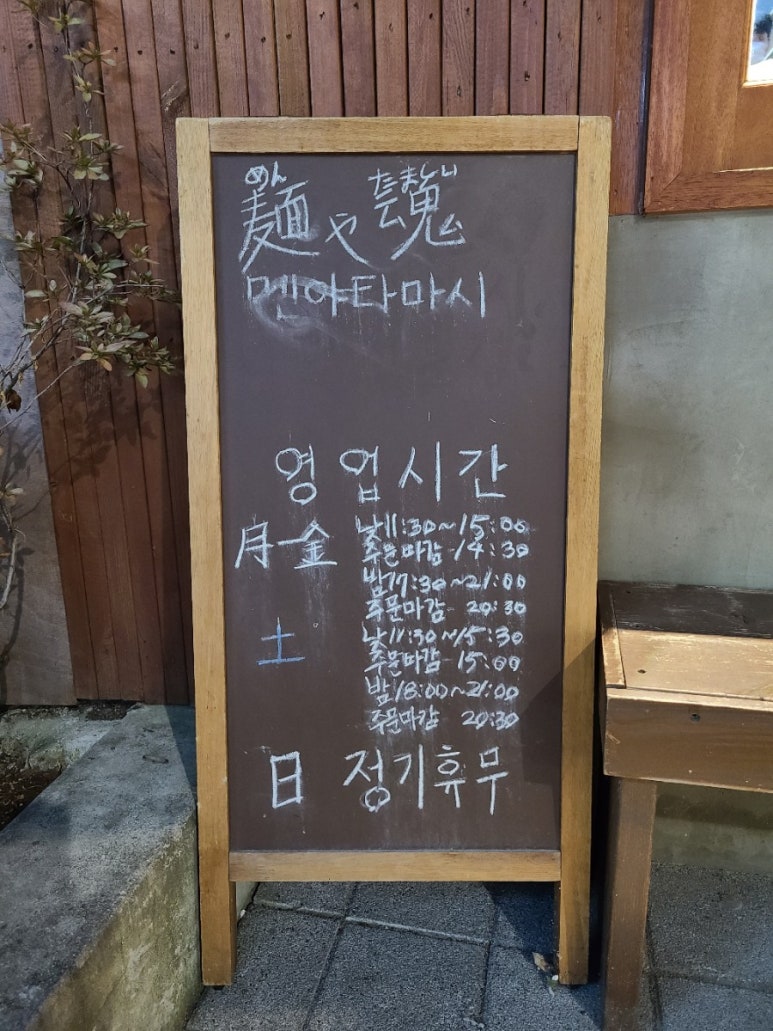 めん たましい
麺や魂
멘야타마시
영업시간
月-金 낮11:30~15:00
주문마감 14:30
밤17:30~21:00
주문마감 20:30
土 낮11:30~15:30
주문마감 15:00
밤18:00~21:00
주문마감 20:30
日 정기휴무